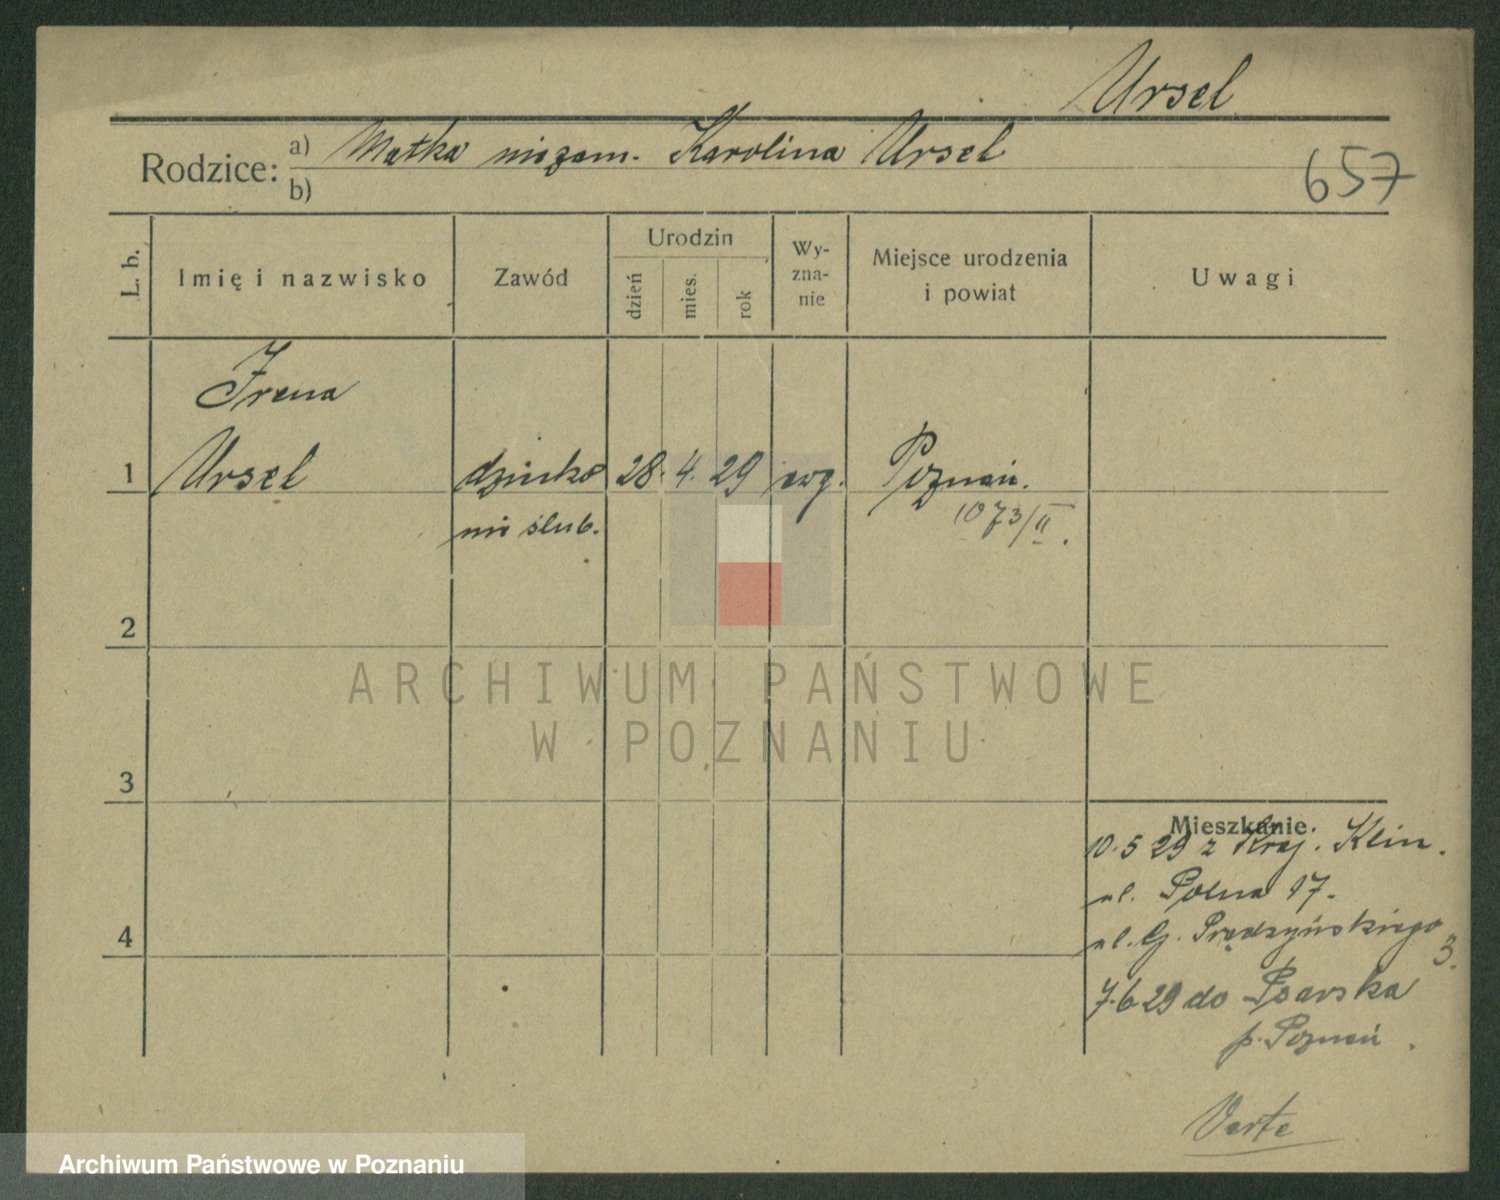 Ursel
Rodzice: a) Matka niezam. Karolina Ursel
b)
657
L. b. Imię i nazwisko Zawód Urodzin dzień mies. rok Wy-zna-nie Miejsce urodzenia i powiat Uwagi
Irena
1 Ursel dziecko 28. 4. 29 ewg. Poznań.
nie ślub. 1073/II.
2
ARCHIWUM PAŃSTWOWE
W POZNANIU
3
Mieszkanie.
10.5 29 z Kraj. Klin.
ul. Polna 17.
4
ul. G. Prądzyńskiego 3.
7.6 29 do Psarska
p. Poznań.
Verte
Archiwum Państwowe w Poznaniu